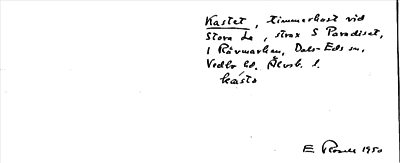 Kastet, timmerkast vid
Stora Le, strax S Paradiset,
i Rävmarken, Dals-Eds sn,
Vedbo hd. Älvsb. l.
kásta
E 1950